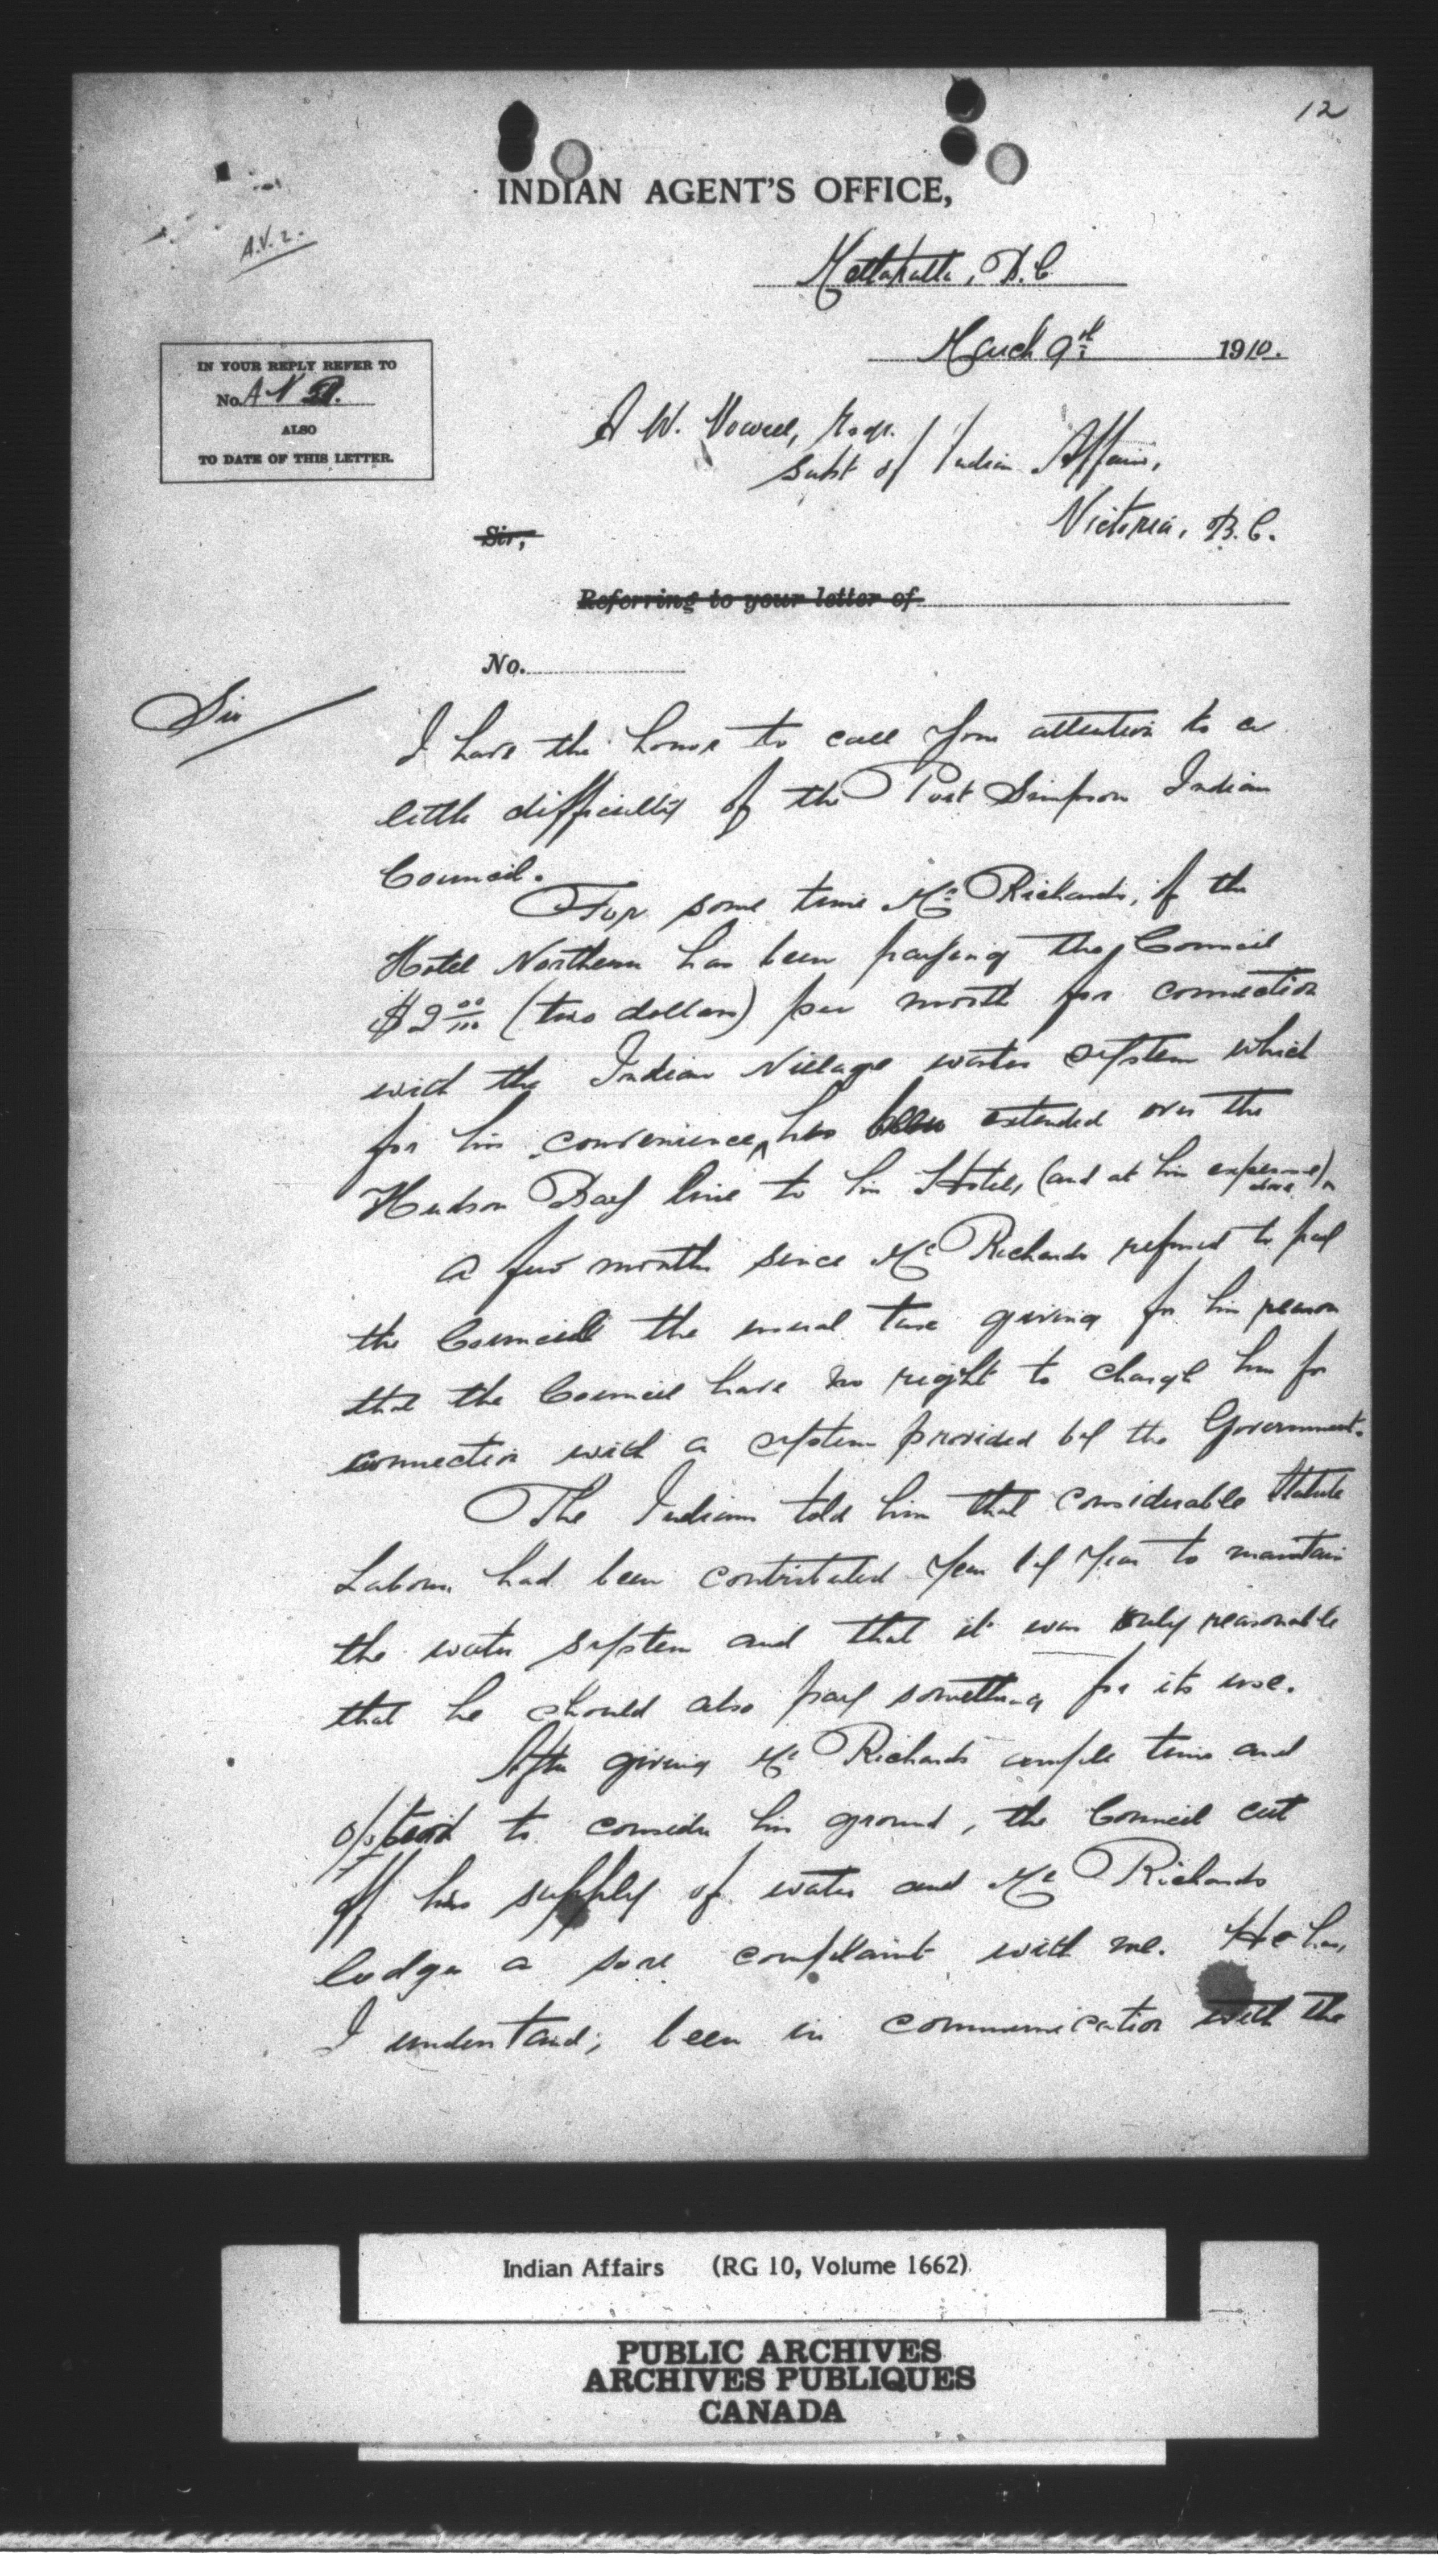 12
INDIAN AGENT'S OFFICE,
A.V. 2.
Metlakatla, B.C.
March 9th 1910.
IN YOUR REPLY REFER TO
No. A N
ALSO
TO DATE OF THIS LETTER.
A W. Vowell, Esqr.
Supt of Indian Affairs,
Victoria, B.C.
Sir,
Referring to your letter of
No.
Sir
I have the honor to call your attention to a
little difficulty of the Port Simpson Indian
Council.
For some time Mr Richards, of the
Hotel Northern has been paying the Council
$2 00/100 (two dollars) per month for connection
with the Indian Village water system which
for his convenience, has been extended over the
Hudson Bay line to his Hotel, (and at his expense)
A few months since Mr Richards refused to pay
the Council the usual tax giving for his reason
that the Council have no right to charge him for
connection with a system provided by the Government.
The Indians told him that considerable Statute
Labour had been contributed year by year to maintain
the water system and that it was only reasonable
that he should also pay something for its use.
After giving Mr Richards ample time and
to consider his ground, the Council cut
off his supply of water and Mr Richards
lodges a sore complaint with me. He has,
I understand, been in communication with the
Indian Affairs (RG 10, Volume 1662)
PUBLIC ARCHIVES
ARCHIVES PUBLIQUES
CANADA